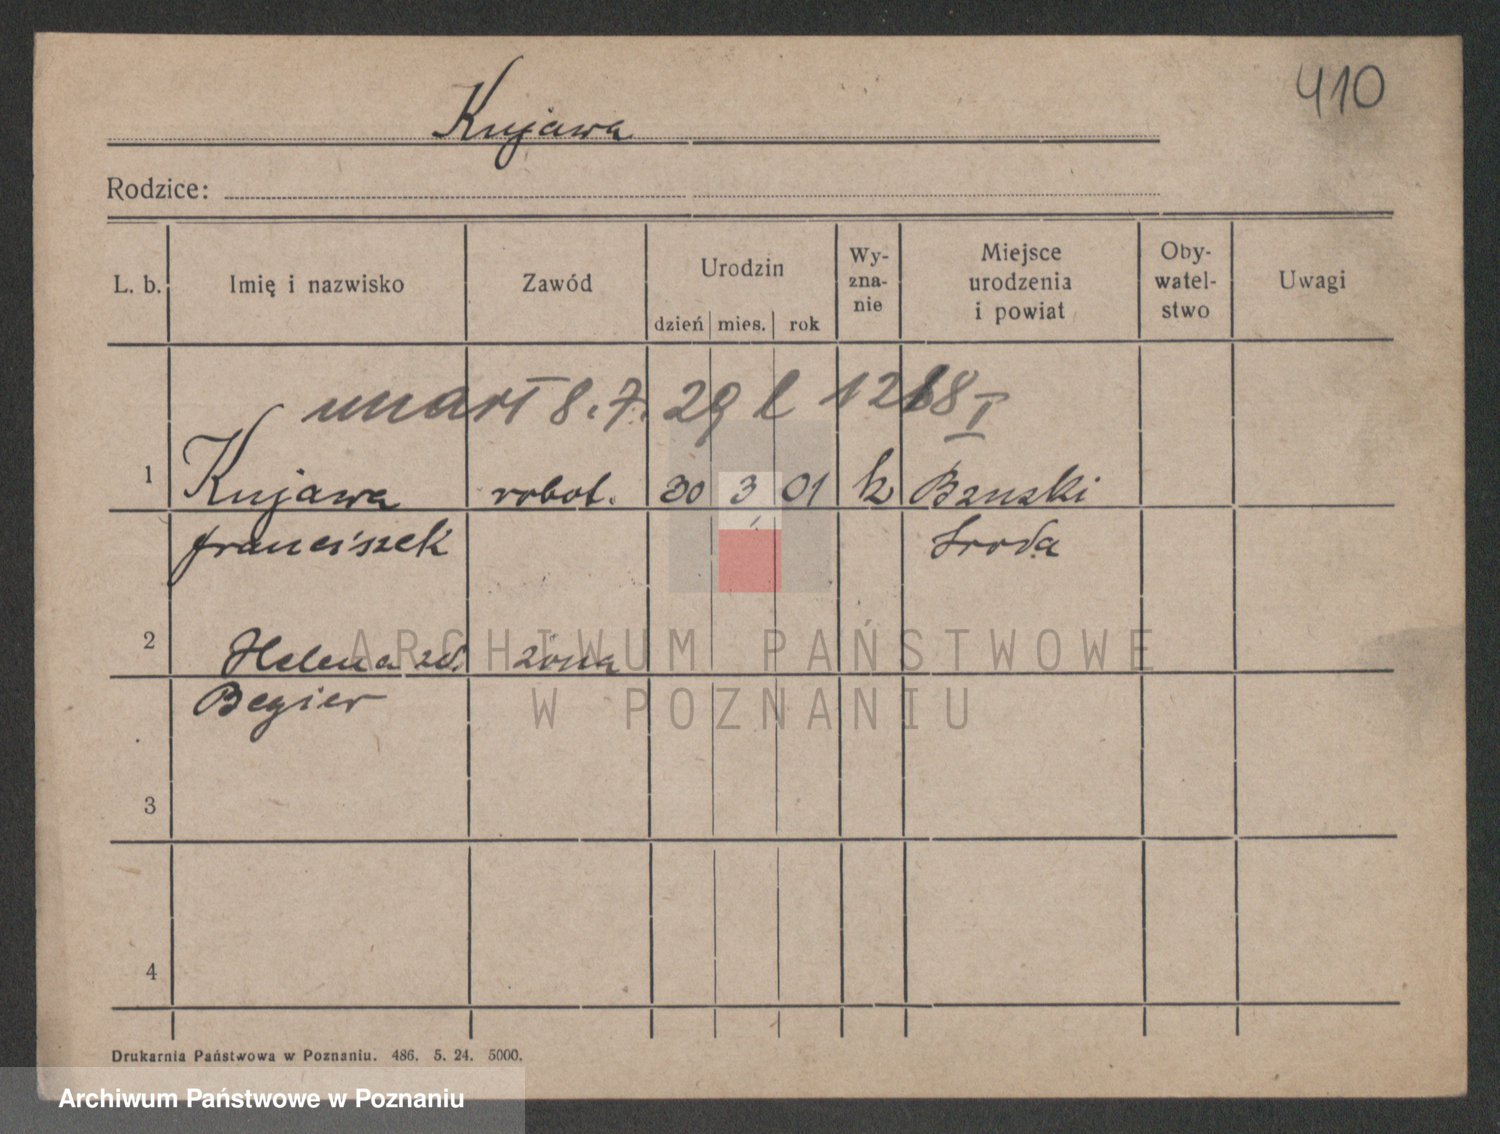 410
Kujawa
Rodzice:
L. b. Imię i nazwisko Zawód Urodzin dzień mies. rok Wy-zna-nie Miejsce urodzenia i powiat Oby-watel-stwo Uwagi
umarł 8.7.29 l I
1 Kujawa robot. 30 3 01 k
franciszek Sroda
2 Helena zd. żona
Begier
3
4
ARCHIWUM PAŃSTWOWE
W POZNANIU
Drukarnia Państwowa w Poznaniu. 486. 5. 24. 5000.
Archiwum Państwowe w Poznaniu